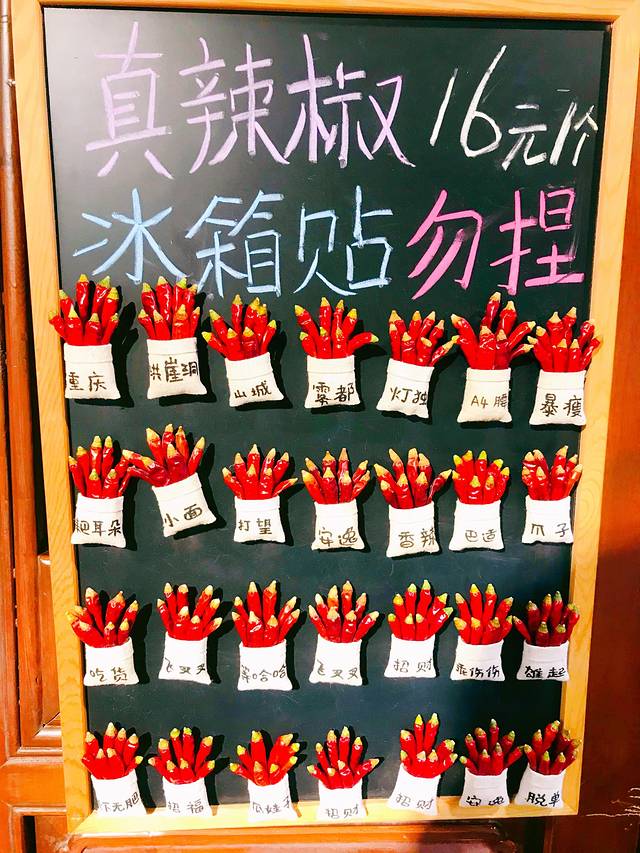 真辣椒 16元1个
冰箱贴 勿捏
重庆 洪崖洞 山城 雾都 灯独 A4腰 暴瘦
耙耳朵 小面 打望 安逸 香辣 巴适 爪子
吃货 飞叉叉 笨哈哈 飞叉叉 招财 乖伤伤 雄起
吓无肥 招福 瓜娃子 招财 招财 安逸 脱单